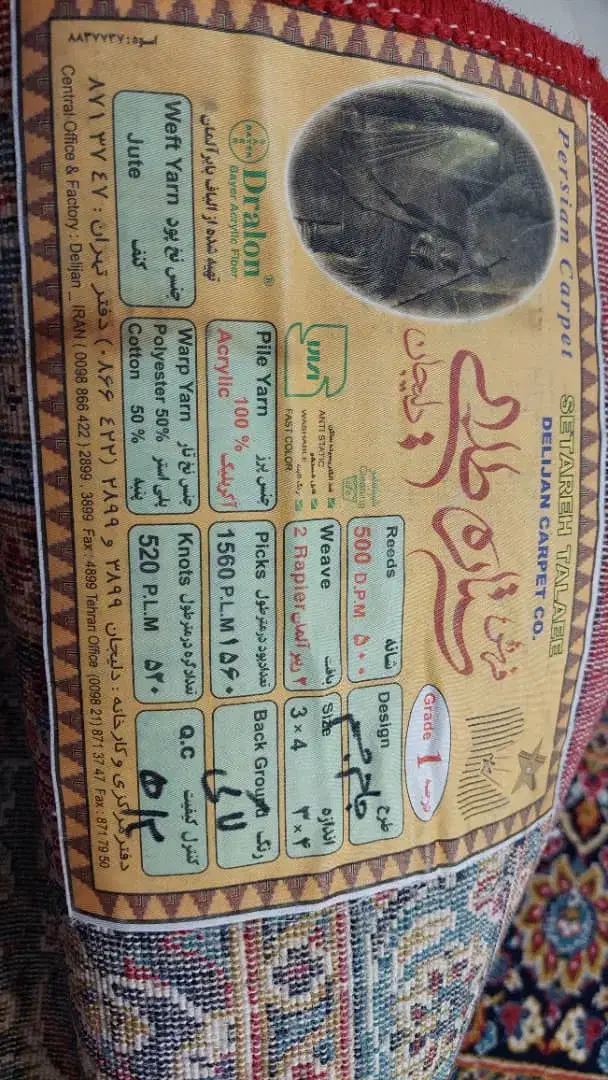 Persian Carpet
SETAREH TALAEE
DELIJAN CARPET CO.
فرش ستاره طلایی دلیجان
Grade 1 درجه
BAYER
Dralon®
Bayer Acrylic Fiber
تهیه شده از الیاف بایر آلمان
ANTI STATIC
WASHABLE
FAST COLOR
Reeds شانه
500 D.PM ۵۰۰
Design طرح
Weave بافت
2 Rapier ۲ رپیر آلمان
Size اندازه
3 × 4 ۳ × ۴
Pile Yarn جنس پرز
100 %
Acrylic آکریلیک
Picks تعداد پود در متر طول
1560 P.L.M ۱۵۶۰
Back Ground رنگ
لاکی
Weft Yarn جنس نخ پود
Jute کنف
Warp Yarn جنس نخ تار
Polyester 50% پلی استر
Cotton 50 % پنبه
Knots تعداد گره در متر طول
520 P.L.M ۵۲۰
Q.C کنترل کیفیت
دفتر مرکزی و کارخانه : دلیجان ۳۸۹۹ و ۲۸۹۹ (۴۲۲ ۰۸۶۶) دفتر تهران : ۴۷ ۳۷ ۸۷۱
Central Office & Factory : Delijan _ IRAN ( 0098 866 422 ) 2899 , 3899 Fax : 4899 Tehran Office (0098 21) 871 37 47 Fax : 871 79 50